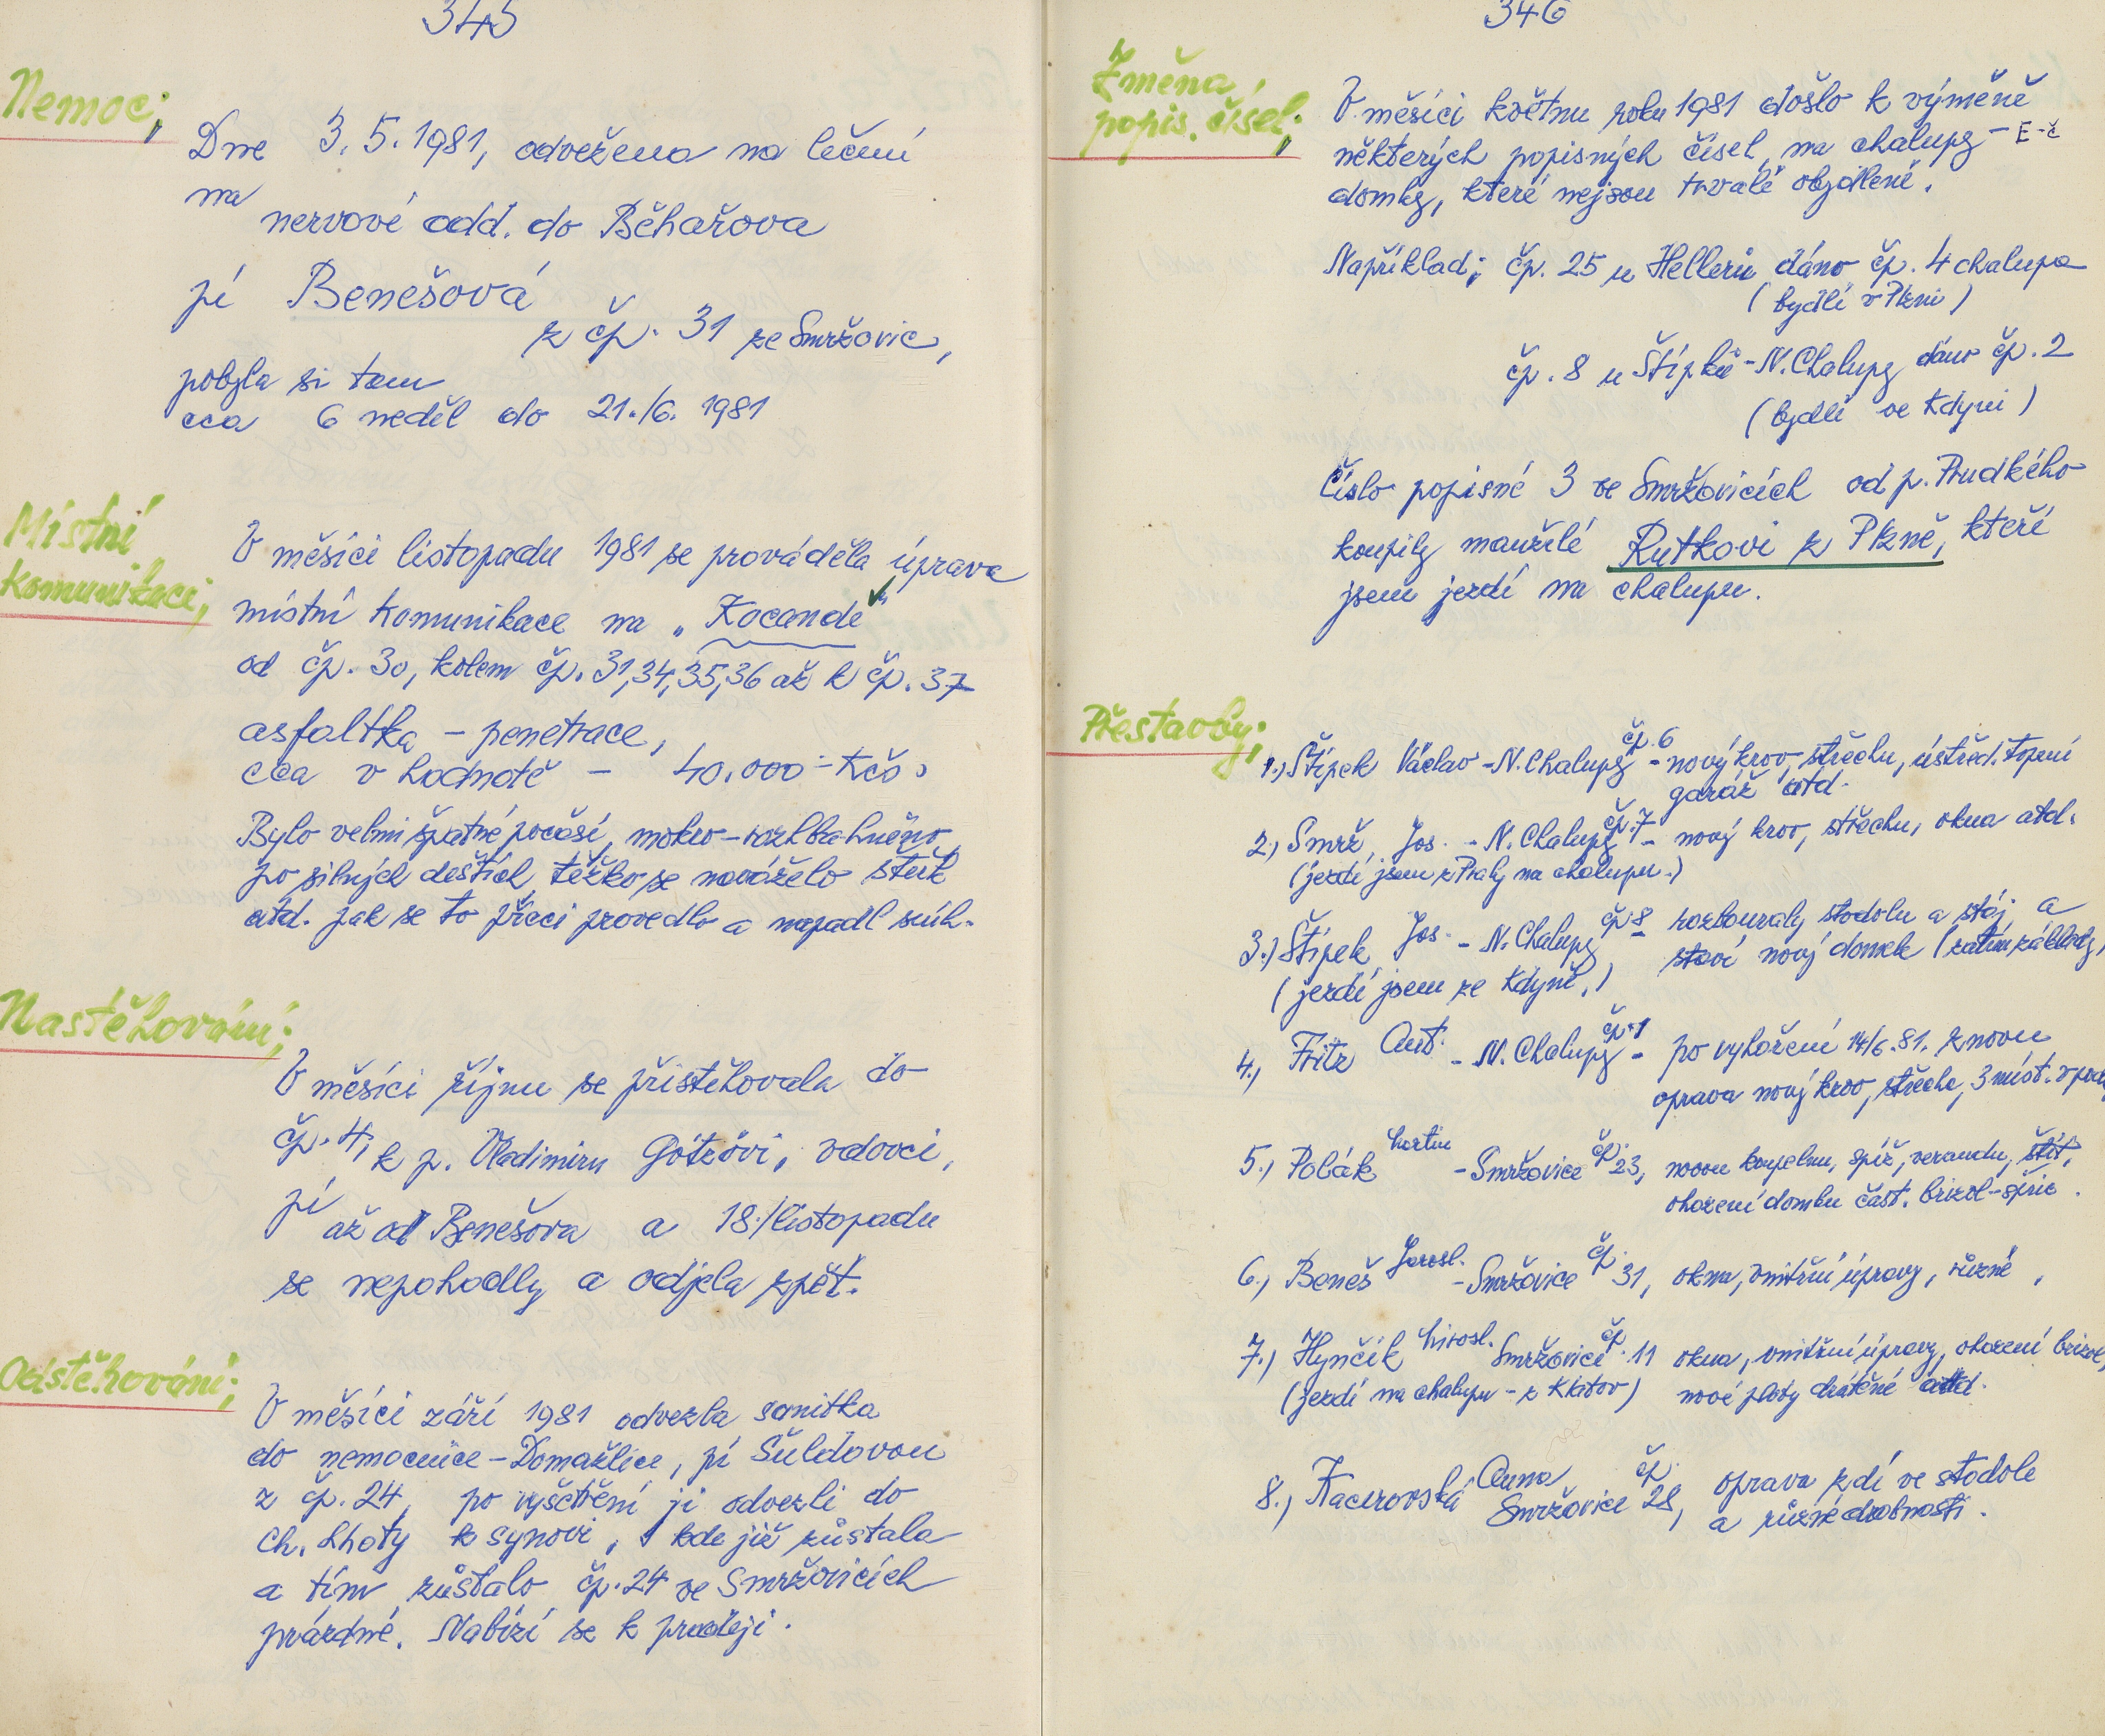 345
Nemoc;
Dne 3.5.1981, odvežena na léčení
na
nervové odd. do Běhařova
pí Benešová
z čp. 31 ze Smržovic,
pobyla si tam
cca 6 neděl do 21./6. 1981
Místní
komunikaci;
V měsíci listopadu 1981 se prováděla úprava
místní komunikace na „Kocandě"
od čp. 30, kolem čp. 31,34,35,36 až k čp. 37
asfaltka - penetrace,
cca v hodnotě - 40.000 - Kčs.
Bylo velmi špatné počasí, mokro - rozblahněno
po silných deštích, těžko se naváželo štěrk
atd. jak se to přeci provedlo a napadl sníh.
Nastěhování;
V měsíci říjnu se přistěhovala do
čp. 4, k p. Vladimíru Götzovi, vdovci,
pí
až od Benešova a 18./listopadu
se nepohodly a odjela zpět.
Odstěhování;
V měsíci září 1981 odvezla sanitka
do nemocnice - Domažlice, pí Šuldovou
z čp. 24, po vyšetření ji odvezli do
Ch. Lhoty k synovi, kde již zůstala
a tím zůstalo čp. 24 ve Smržovicích
prázdné. Nabízí se k prodeji.
346
Změna
popis. čísel;
V měsíci květnu roku 1981 došlo k výměně
některých popisných čísel, na chalupy - E-č
domky, které nejsou trvalé obydlené.
Například; čp. 25 u Hellerů dáno čp. 4 chalupa
(bydlí v Plzni)
čp. 8 u Štípků - N. Chalupy dáno čp. 2
(bydlí ve Kdyni)
Číslo popisné 3 ve Smržovicích od p. Prudkého
koupily manželé Rutkovi z Plzně, kteří
jsem jezdí na chalupu.
Přestavby;
1.) Štípek Václav - N. Chalupy čp. 6 - nový krov, střechu, ústřed. topení
garáž atd.
2.) Smrž, Jos. - N. Chalupy čp. 7 - nový krov, střechu, okna atd.
(jezdí jsem z Prahy na chalupu.)
3.) Štípek Jos. - N. Chalupy čp. 8 - rozbouraly stodolu a stáj a
staví nový domek (zatím základy,
(jezdí jsem ze Kdyně.)
4.) Fritz Ant. - N. Chalupy čp. 1 - po vyhoření 14/6.81. znovu
oprava nový krov, střecha, 3 míst.
5.) Polák Martin - Smržovice čp. 23, novou koupelnu, spíž, verandu, štít,
ohození domku část. brizol-špric.
6.) Beneš Jarosl. - Smržovice čp. 31, okna, vnitřní úpravy, různé,
7.) Hynčík Mirosl. Smržovice čp. 11 okna, vnitřní úpravy, ohození brizol,
(jezdí na chalupu - z Klatov) nové ploty drátěné atd.
8.) Kacerovská Anna Smržovice čp. 28, oprava zdí ve stodole
a různé drobnosti.